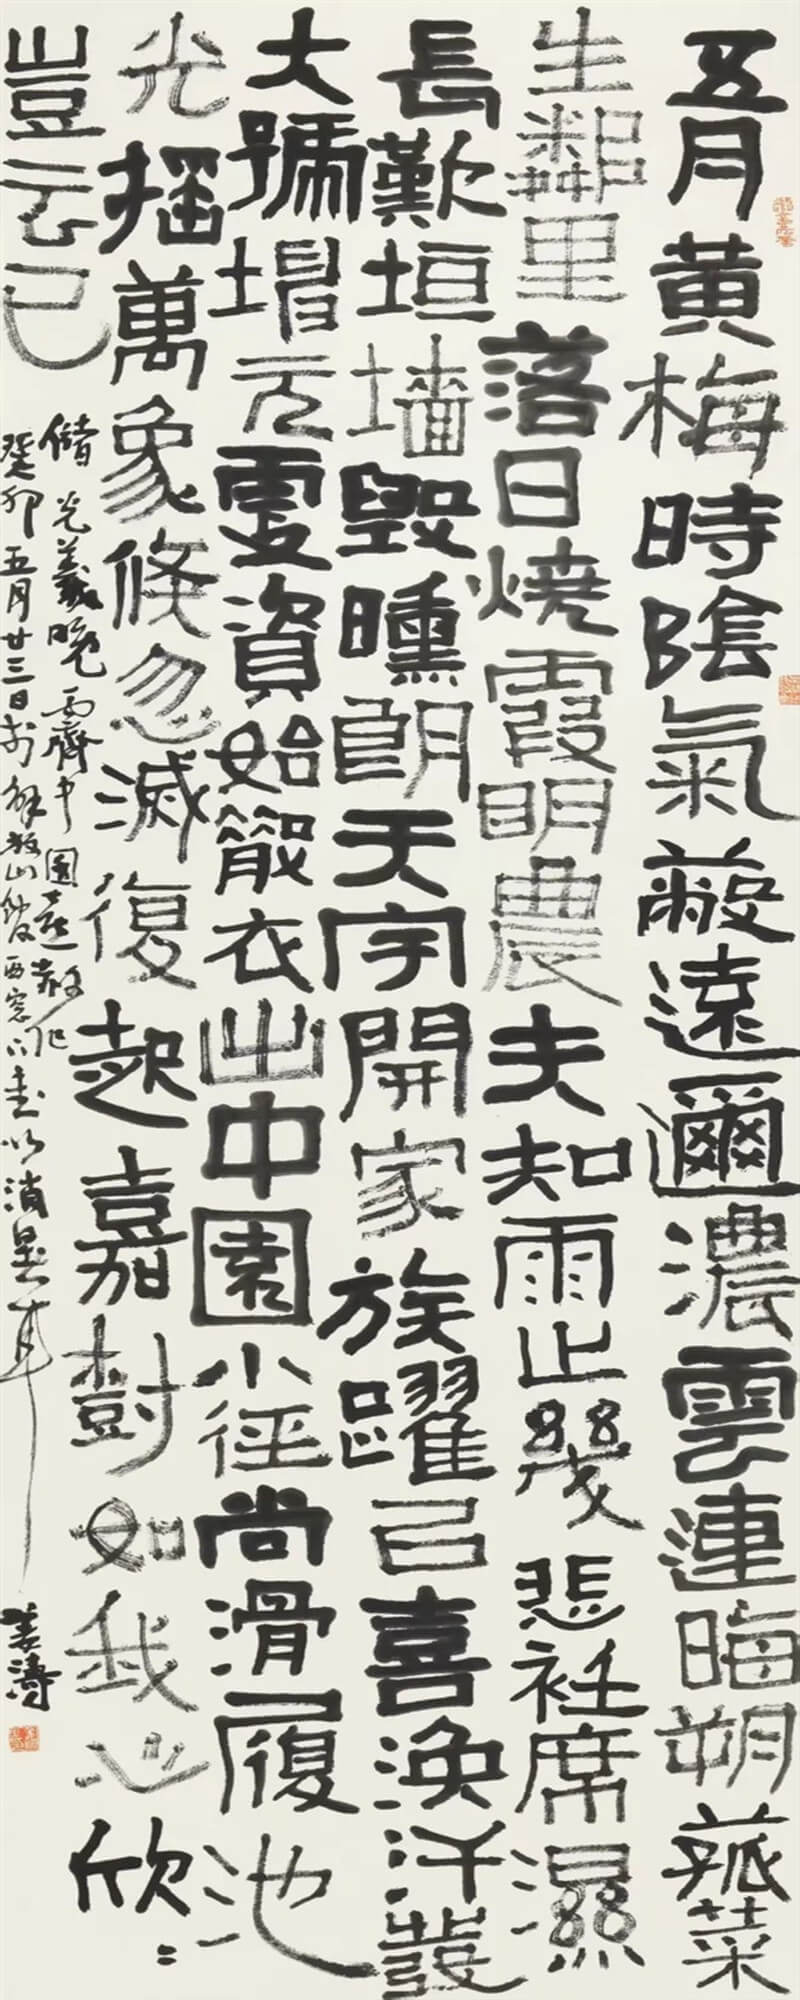 五月黃梅時陰氣蔽遠邇濃雲連晦朔菰菜
生鄰里落日燒霞明農夫知雨止幾悲衽席濕
長歎垣墻毀曛朗天宇開家族躍已喜渙汗發
大號坤元更資始散衣出中園小徑尚滑履池
光搖萬象倏忽滅復起嘉樹如我心欣=
豈云已
儲光羲晚雨霽中園喜赦作
癸卯五月廿三日於山西窓下書以消暑耳
姜濤